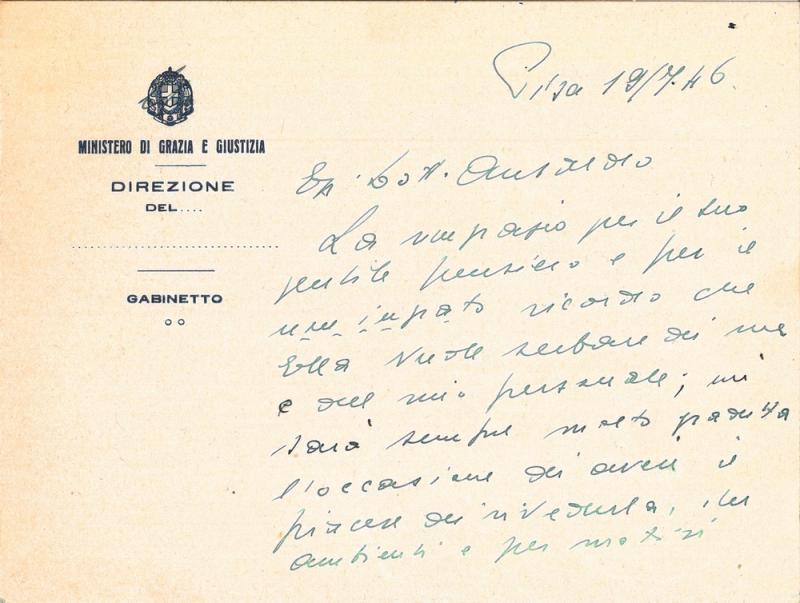 Pisa 19/7.46.
MINISTERO DI GRAZIA E GIUSTIZIA
DIREZIONE
DEL....
GABINETTO
Eg. Dott. Ansaldo
La ringrazio per il suo
gentile pensiero e per il
non ingrato ricordo che
Ella vuole serbare di me
e del mio personale; mi
sarà sempre molto gradita
l'occasione di avere il
piacere di rivederla, in
ambienti e per motivi